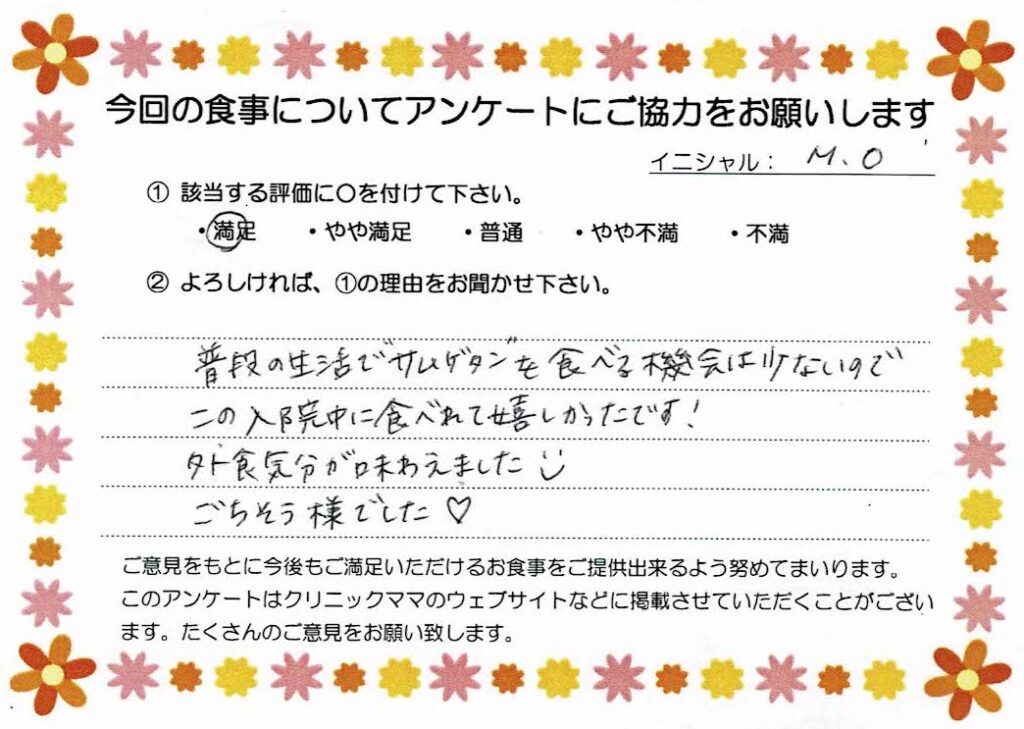 今回の食事についてアンケートにご協力をお願いします
イニシャル： M.O
① 該当する評価に〇を付けて下さい。
・満足 ・やや満足 ・普通 ・やや不満 ・不満
② よろしければ、①の理由をお聞かせ下さい。
普段の生活でサムゲタンを食べる機会は少ないので
この入院中に食べれて嬉しかったです！
外食気分が味わえました
ごちそう様でした♡
ご意見をもとに今後もご満足いただけるお食事をご提供出来るよう努めてまいります。
このアンケートはクリニックママのウェブサイトなどに掲載させていただくことがござい
ます。たくさんのご意見をお願い致します。